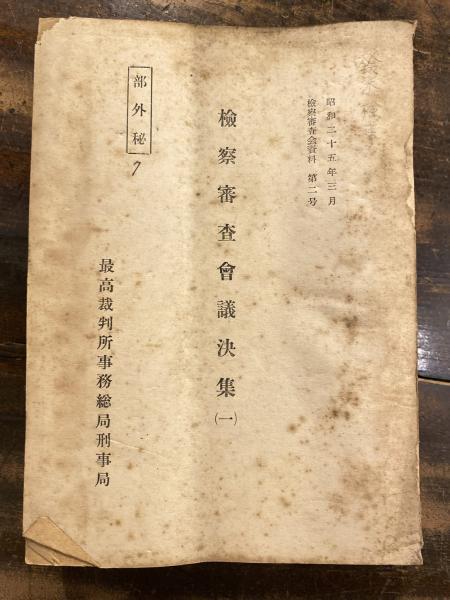 昭和二十五年三月
檢察審査会資料 第二号
檢察審査會議決集(一)
部外秘
7
最高裁判所事務総局刑事局